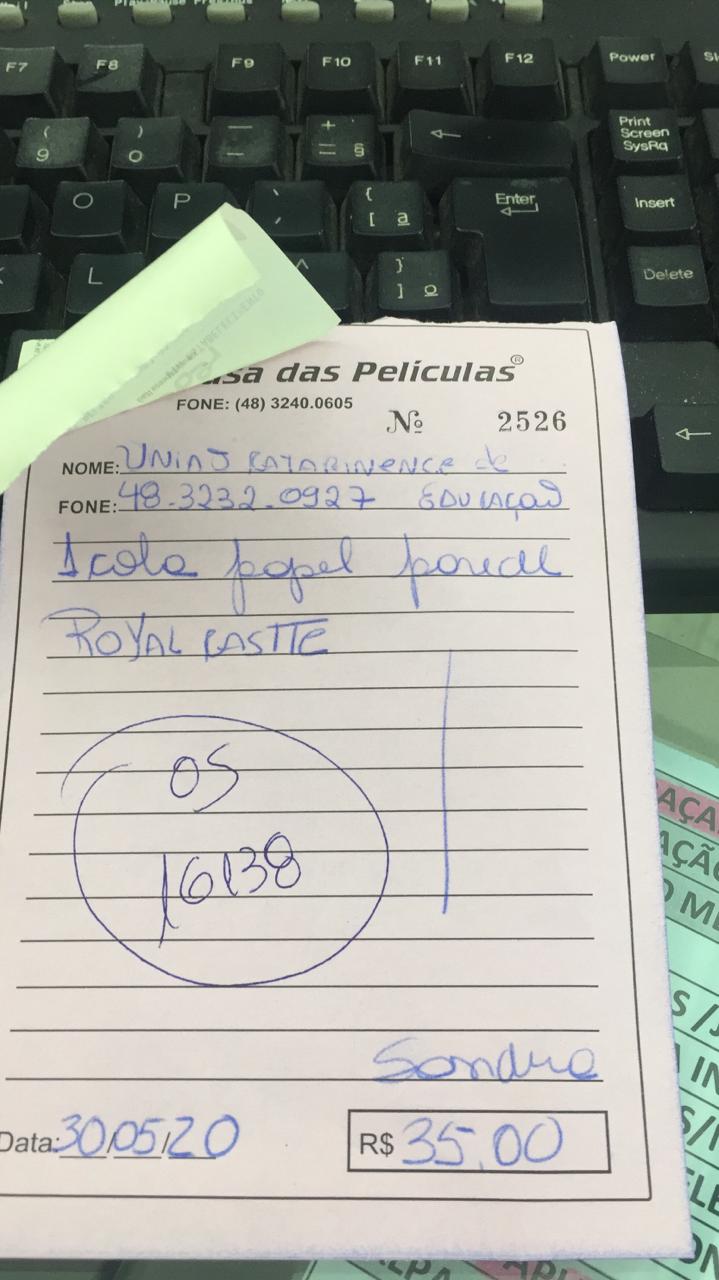 Play/Pause Previous
F7 F8 F9 F10 F11 F12 Power
( 9 ) 0 — - + = § ← Print Screen SysRq
O P ` ´ { [ ª Enter Insert
K L ^ } ] º Delete
←
asa das Películas®
FONE: (48) 3240.0605
Nº 2526
NOME: UNIAO CATARINENCE de
FONE: 48-3232-0927 EDUCAÇAO
1 cola papel parede
ROYAL CASTTE
OS
16138
Sandra
Data: 30/05/20 R$ 35,00
AÇA
AÇÃO
O ME
S /
IN
S/
ELE
ON